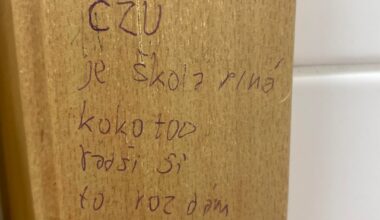 CZU
je škola plná
kokotoo
radši si
to rozdám